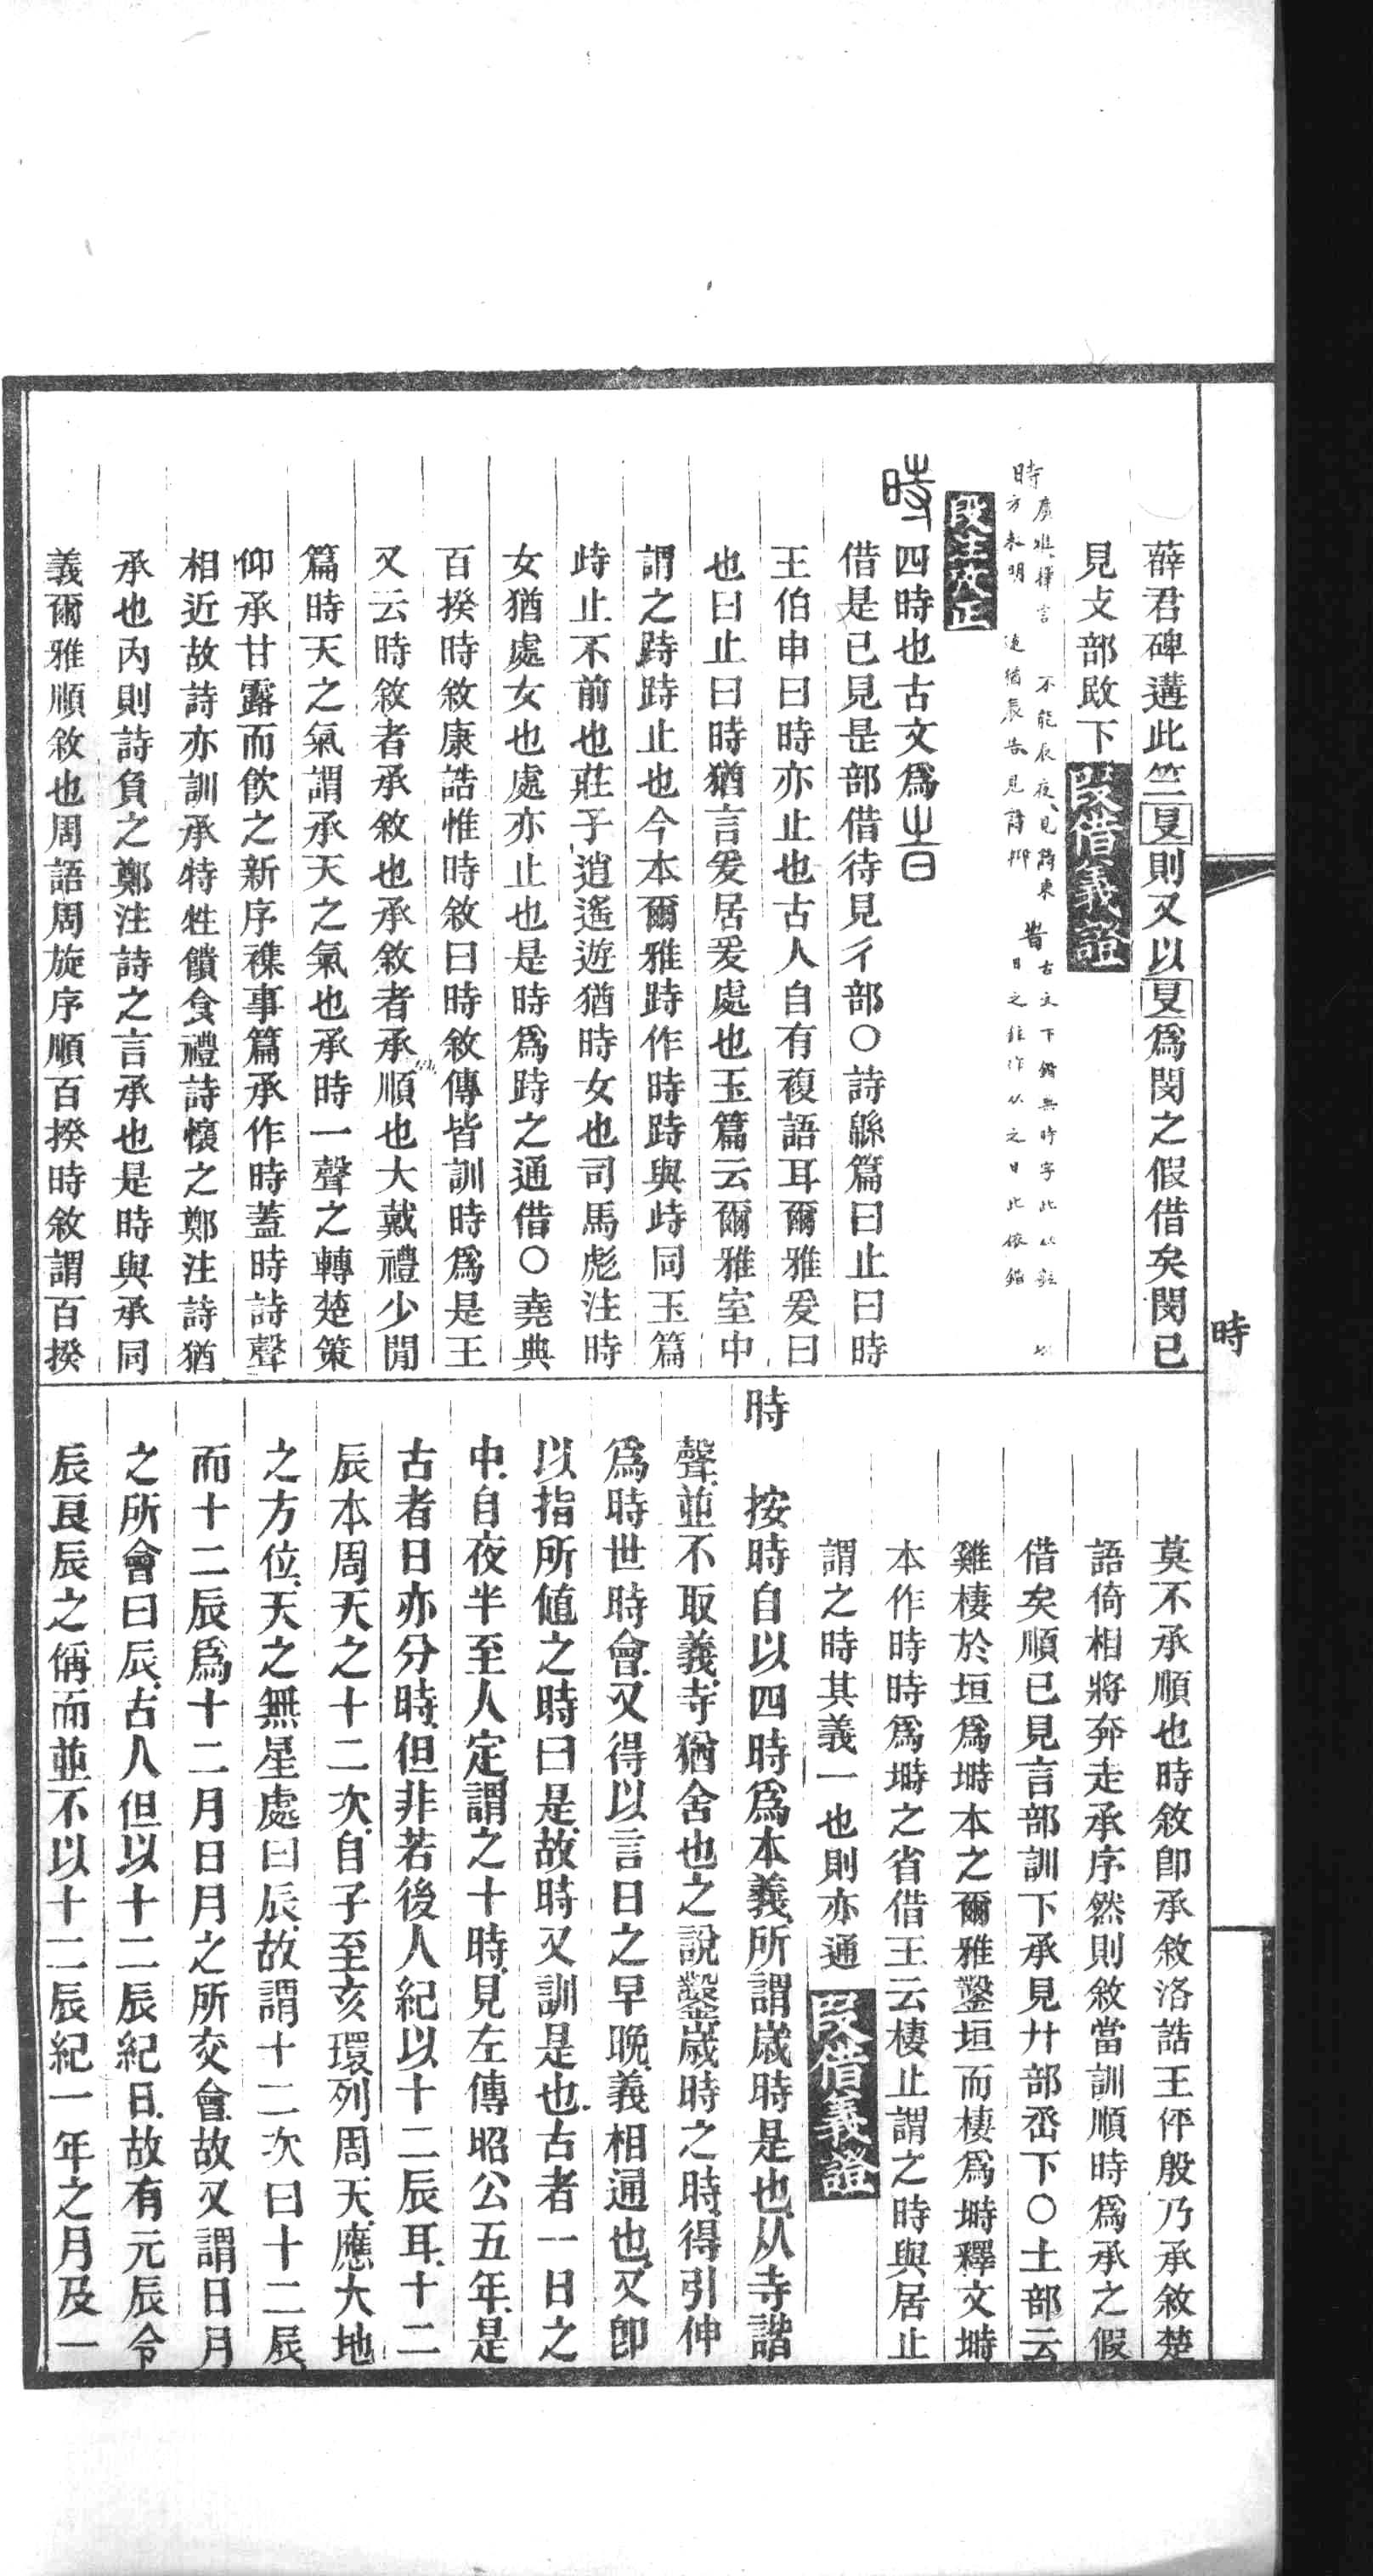 薛君碑遘此竺旻則又以旻爲閔之假借矣閔已
見攴部敃下
叚借義證
時廣雅釋言 不能辰夜見詩東
方未明 遠猶辰告見詩抑
旹古文下鍇無時字此从鉉
日之鉉作从之日此依鍇
段注攷正
時四時也古文爲旹
借是已見是部借待見彳部○詩緜篇曰止曰時
王伯申曰時亦止也古人自有複語耳爾雅爰曰
也曰止曰時猶言爰居爰處也玉篇云爾雅室中
謂之跱跱止也今本爾雅跱作時跱與歭同玉篇
歭止不前也莊子逍遙遊猶時女也司馬彪注時
女猶處女也處亦止也是時爲跱之通借○堯典
百揆時敘康誥惟時敘曰時敘傳皆訓時爲是王
又云時敘者承敘也承敘者承順也大戴禮少閒
篇時天之氣謂承天之氣也承時一聲之轉楚策
仰承甘露而飮之新序襍事篇承作時蓋時詩聲
相近故詩亦訓承特牲饋食禮詩懷之鄭注詩猶
承也內則詩負之鄭注詩之言承也是時與承同
義爾雅順敘也周語周旋序順百揆時敘謂百揆
時
莫不承順也時敘卽承敘洛誥王伻殷乃承敘楚
語倚相將奔走承序然則敘當訓順時爲承之假
借矣順已見言部訓下承見廾部丞下○土部云
雞棲於垣爲塒本之爾雅鑿垣而棲爲塒釋文塒
本作時時爲塒之省借王云棲止謂之時與居止
謂之時其義一也則亦通
叚借義證
時 按時自以四時爲本義所謂歲時是也从寺諧
聲並不取義寺猶舍也之說鑿歲時之時得引伸
爲時世時會又得以言日之早晚義相通也又卽
以指所値之時曰是故時又訓是也古者一日之
中自夜半至人定謂之十時見左傳昭公五年是
古者日亦分時但非若後人紀以十二辰耳十二
辰本周天之十二次自子至亥環列周天應大地
之方位天之無星處曰辰故謂十二次曰十二辰
而十二辰爲十二月日月之所交會故又謂日月
之所會曰辰古人但以十二辰紀日故有元辰令
辰良辰之稱而並不以十二辰紀一年之月及一